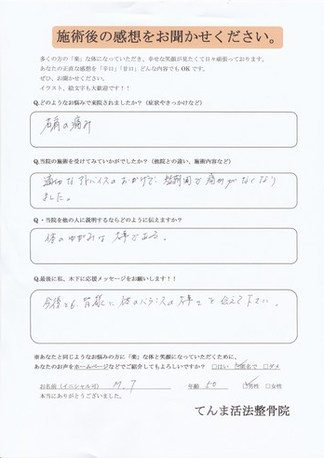 施術後の感想をお聞かせください。
多くの方の「楽」な体になっていただき、幸せな笑顔が見たくて日々頑張っております。
あなたの正直な感想を「辛口」「甘口」どんな内容でもOKです。
ぜひ、お聞かせください。
イラスト、絵文字も大歓迎です!!
Q.どのようなお悩みで来院されましたか?(症状やきっかけなど)
右肩の痛み
Q.当院の施術を受けてみていかがでしたか?(他院との違い、施術内容など)
適切なアドバイスのおかげで、短期間で痛みがなくなり
ました。
Q・当院を他の人に説明するならどのように伝えますか?
体のゆがみは大事である。
Q.最後に私、木下に応援メッセージをお願いします!!
今後とも皆様に体のバランスの大事さを伝えて下さい。
※あなたと同じようなお悩みの方に「楽」な体と笑顔になっていただくために、
あなたのお声をホームページなどでご紹介してもよろしいですか? □はい □匿名で □ダメ
お名前(イニシャル可) M.T 年齢 50 □男性 □女性
本当にありがとうございました。
てんま活法整骨院